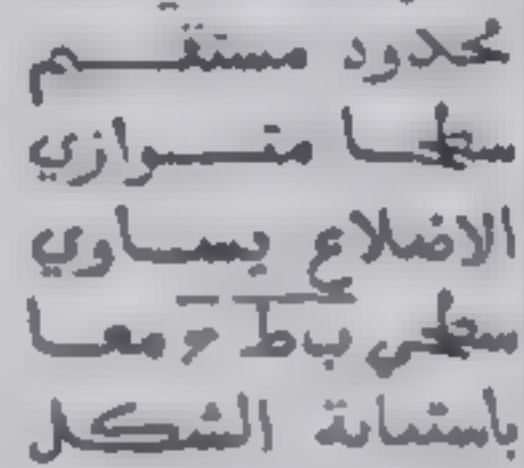 محدود مستقيم
سطحا متوازي
الاضلاع يساوي
سطحي ب ط ح معا
باستبانة الشكل